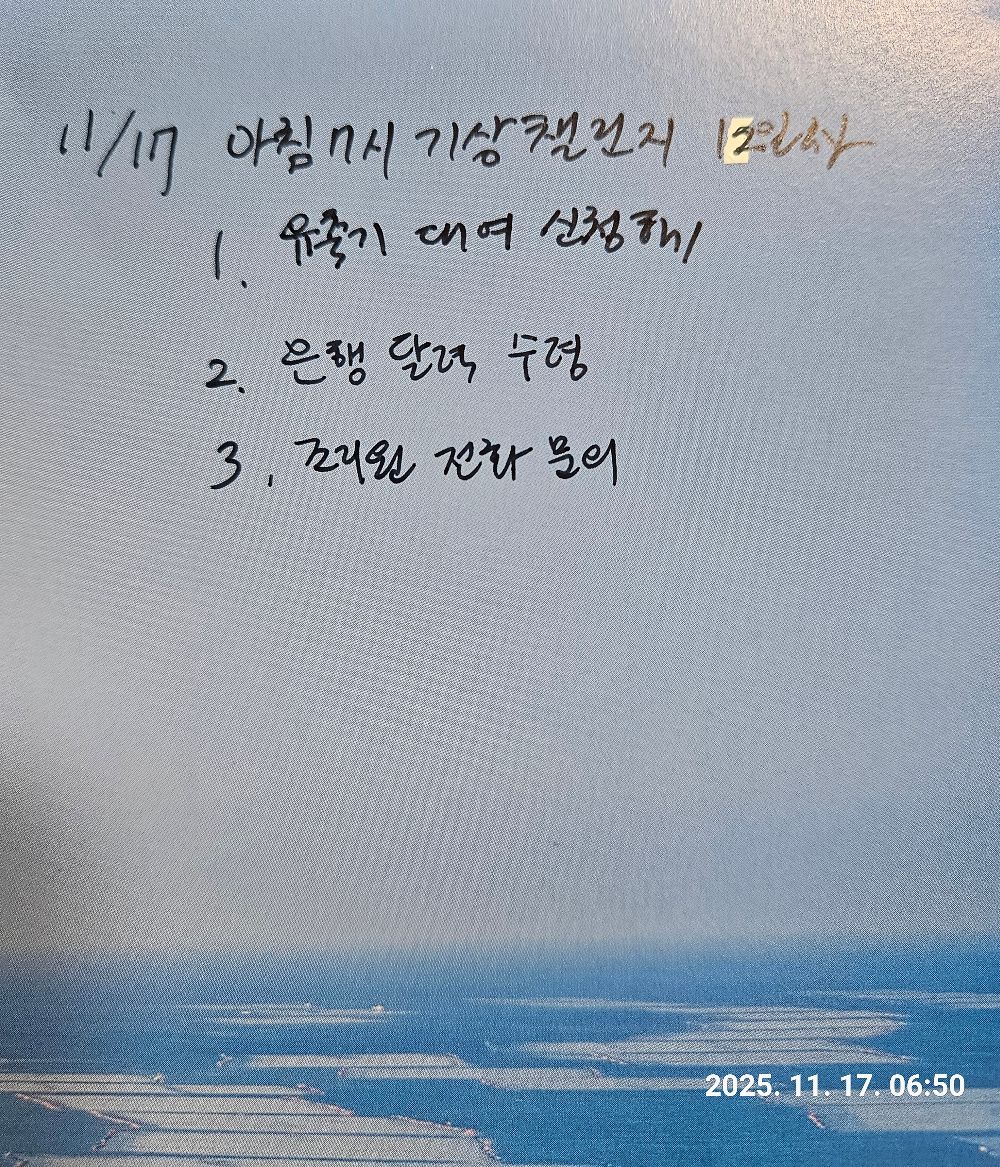 11/17 아침 7시 기상챌린지 12일차
1. 유축기 대여 신청하기
2. 은행 달력 수령
3. 조리원 전화 문의
2025. 11. 17. 06:50